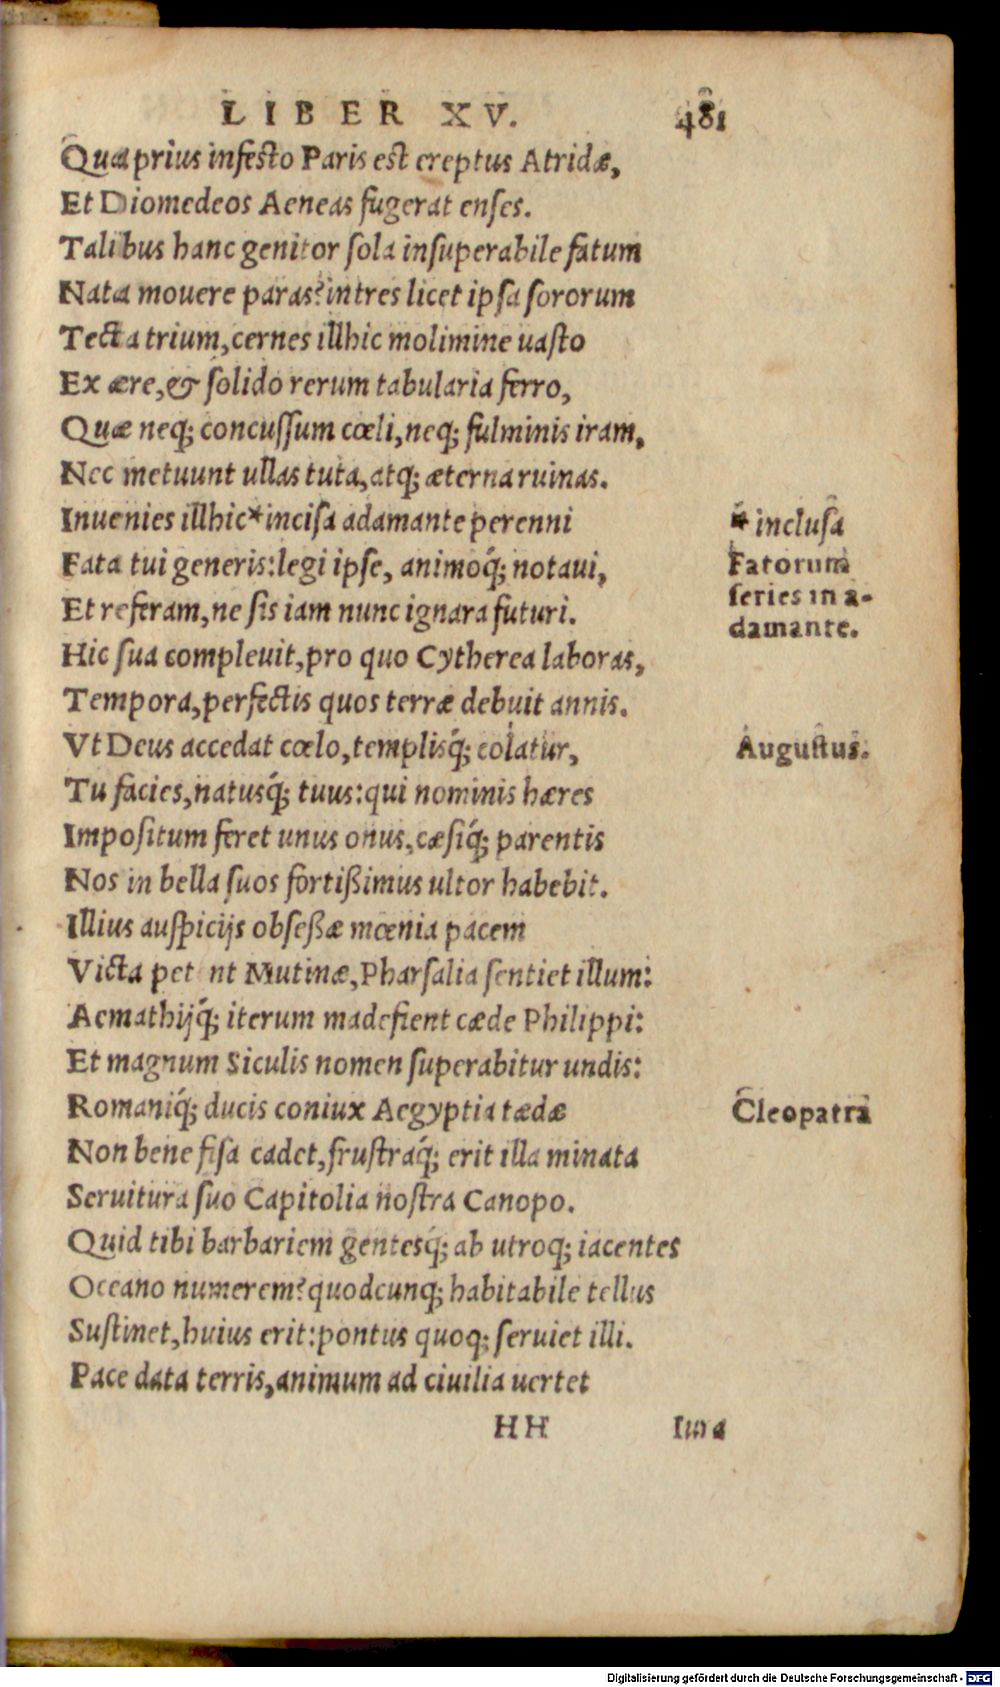 LIBER XV. 481
Qua prius infesto Paris est ereptus Atridæ,
Et Diomedeos Aeneas fugerat enses.
Talibus hanc genitor sola insuperabile fatum
Nata mouere paras? intres licet ipsa sororum
Tecta trium, cernes illhic molimine uasto
Ex ære, & solido rerum tabularia ferro,
Quæ neq; concussum cœli, neq; fulminis iram,
Nec metuunt ullas tuta, atq; æterna ruinas.
Inuenies illhic * incisa adamante perenni
* inclusa
Fata tui generis: legi ipse, animoq́; notaui,
Fatorum
Et referam, ne sis iam nunc ignara futuri.
series in a-
damante.
Hic sua compleuit, pro quo Cytherea laboras,
Tempora, perfectis quos terræ debuit annis.
Vt Deus accedat cœlo, templisq́; colatur,
Augustus.
Tu facies, natusq́; tuus: qui nominis hæres
Impositum feret unus onus, cæsiq́; parentis
Nos in bella suos fortißimus ultor habebit.
Illius auspicijs obseßæ mœnia pacem
Victa pet nt Mutinæ, Pharsalia sentiet illum:
Aemathijq́; iterum madefient cæde Philippi:
Et magnum Siculis nomen superabitur undis:
Romaniq́; ducis coniux Aegyptia tædæ
Cleopatra
Non bene fisa cadet, frustraq́; erit illa minata
Seruitura suo Capitolia nostra Canopo.
Quid tibi barbariem gentesq́; ab utroq; iacentes
Oceano numerem? quodcunq; habitabile tellus
Sustinet, huius erit: pontus quoq; seruiet illi.
Pace data terris, animum ad ciuilia uertet
HH Iura
Digitalisierung gefördert durch die Deutsche Forschungsgemeinschaft - DFG